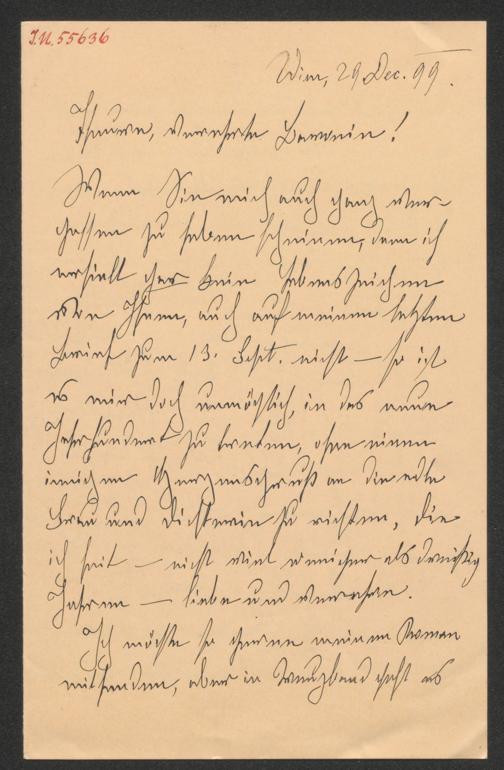 I.N. 55636
Wien, 29 Dec. 99.
Theure, verehrte Baronin!
Wenn Sie mich auch ganz ver-
gessen zu haben scheinen, denn ich
erhielt gar kein Lebenszeichen
von Ihnen, auch auf meinen letzten
Brief zum 13. Sept. nicht — so ist
es mir doch unmöglich, in das neue
Jahrhundert zu treten, ohne einen
innigen Herzensgruß an die edle
Frau und Dichterin zu richten, die
ich seit — nicht viel weniger als dreißig
Jahren — liebe und verehre.
Ich möchte so gerne meinen Roman
mitsenden, aber in Kreuzband geht es